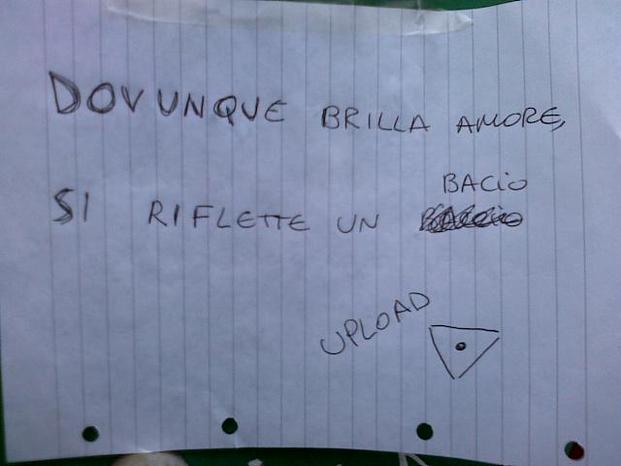 DOVUNQUE BRILLA AMORE,
SI RIFLETTE UN BACiO
UPLOAD